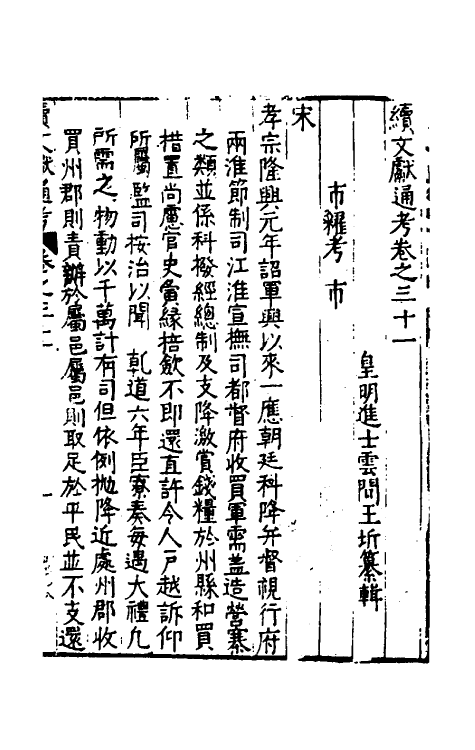 續文獻通考卷之三十一
皇明進士雲間王圻纂輯
市糴考 市
宋
孝宗隆興元年詔軍興以來一應朝廷科降并督視行府
兩淮節制司江淮宣撫司都督府收買軍需盖造營寨
之類並係科撥經總制及支降激賞錢糧於州縣和買
措置尚慮官吏夤緣掊斂不即還直許令人戸越訴仰
所屬監司按治以聞 乹道六年臣寮奏每遇大禮凢
所需之物動以千萬計有司但依例抛降近處州郡收
買州郡則責辦於屬邑屬邑則取足於平民並不支還
續文獻通考 卷之三十一